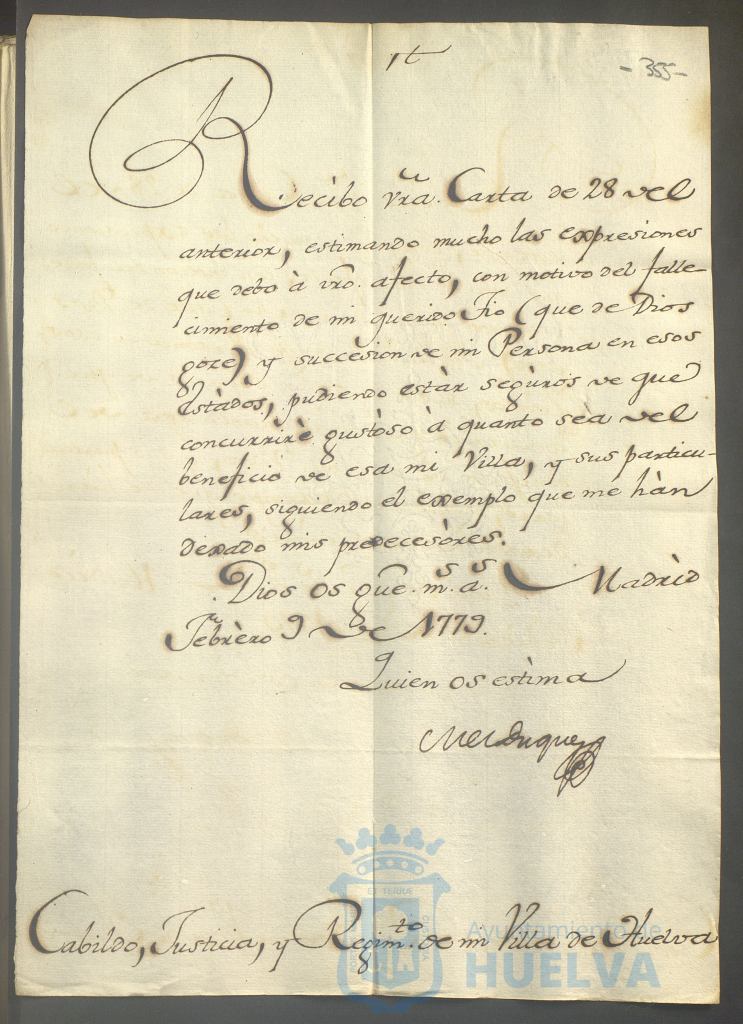 - 355 -
Recibo vrã. Carta de 28 del
anterior, estimando mucho las expresiones
que debo à vrõ. afecto, con motivo del falle-
cimiento de mi querido Tio (que de Dios
goze) y succesion de mi Persona en esos
Estàdos, pudiendo estàr segùros de que
concurrirè gustòso à quanto sea del
beneficio de esa mi Villa, y sus particu-
lares, siguiendo el exemplo que me hàn
dexado mis predecesòres.
Dios os gũe. m.s a.s Madrìd
Febrèro 9 de 1779.
Quien os estìma
Cabildo, Justicia, y Regim.to de mi Villa de Huelva
Ayuntamiento de
HUELVA